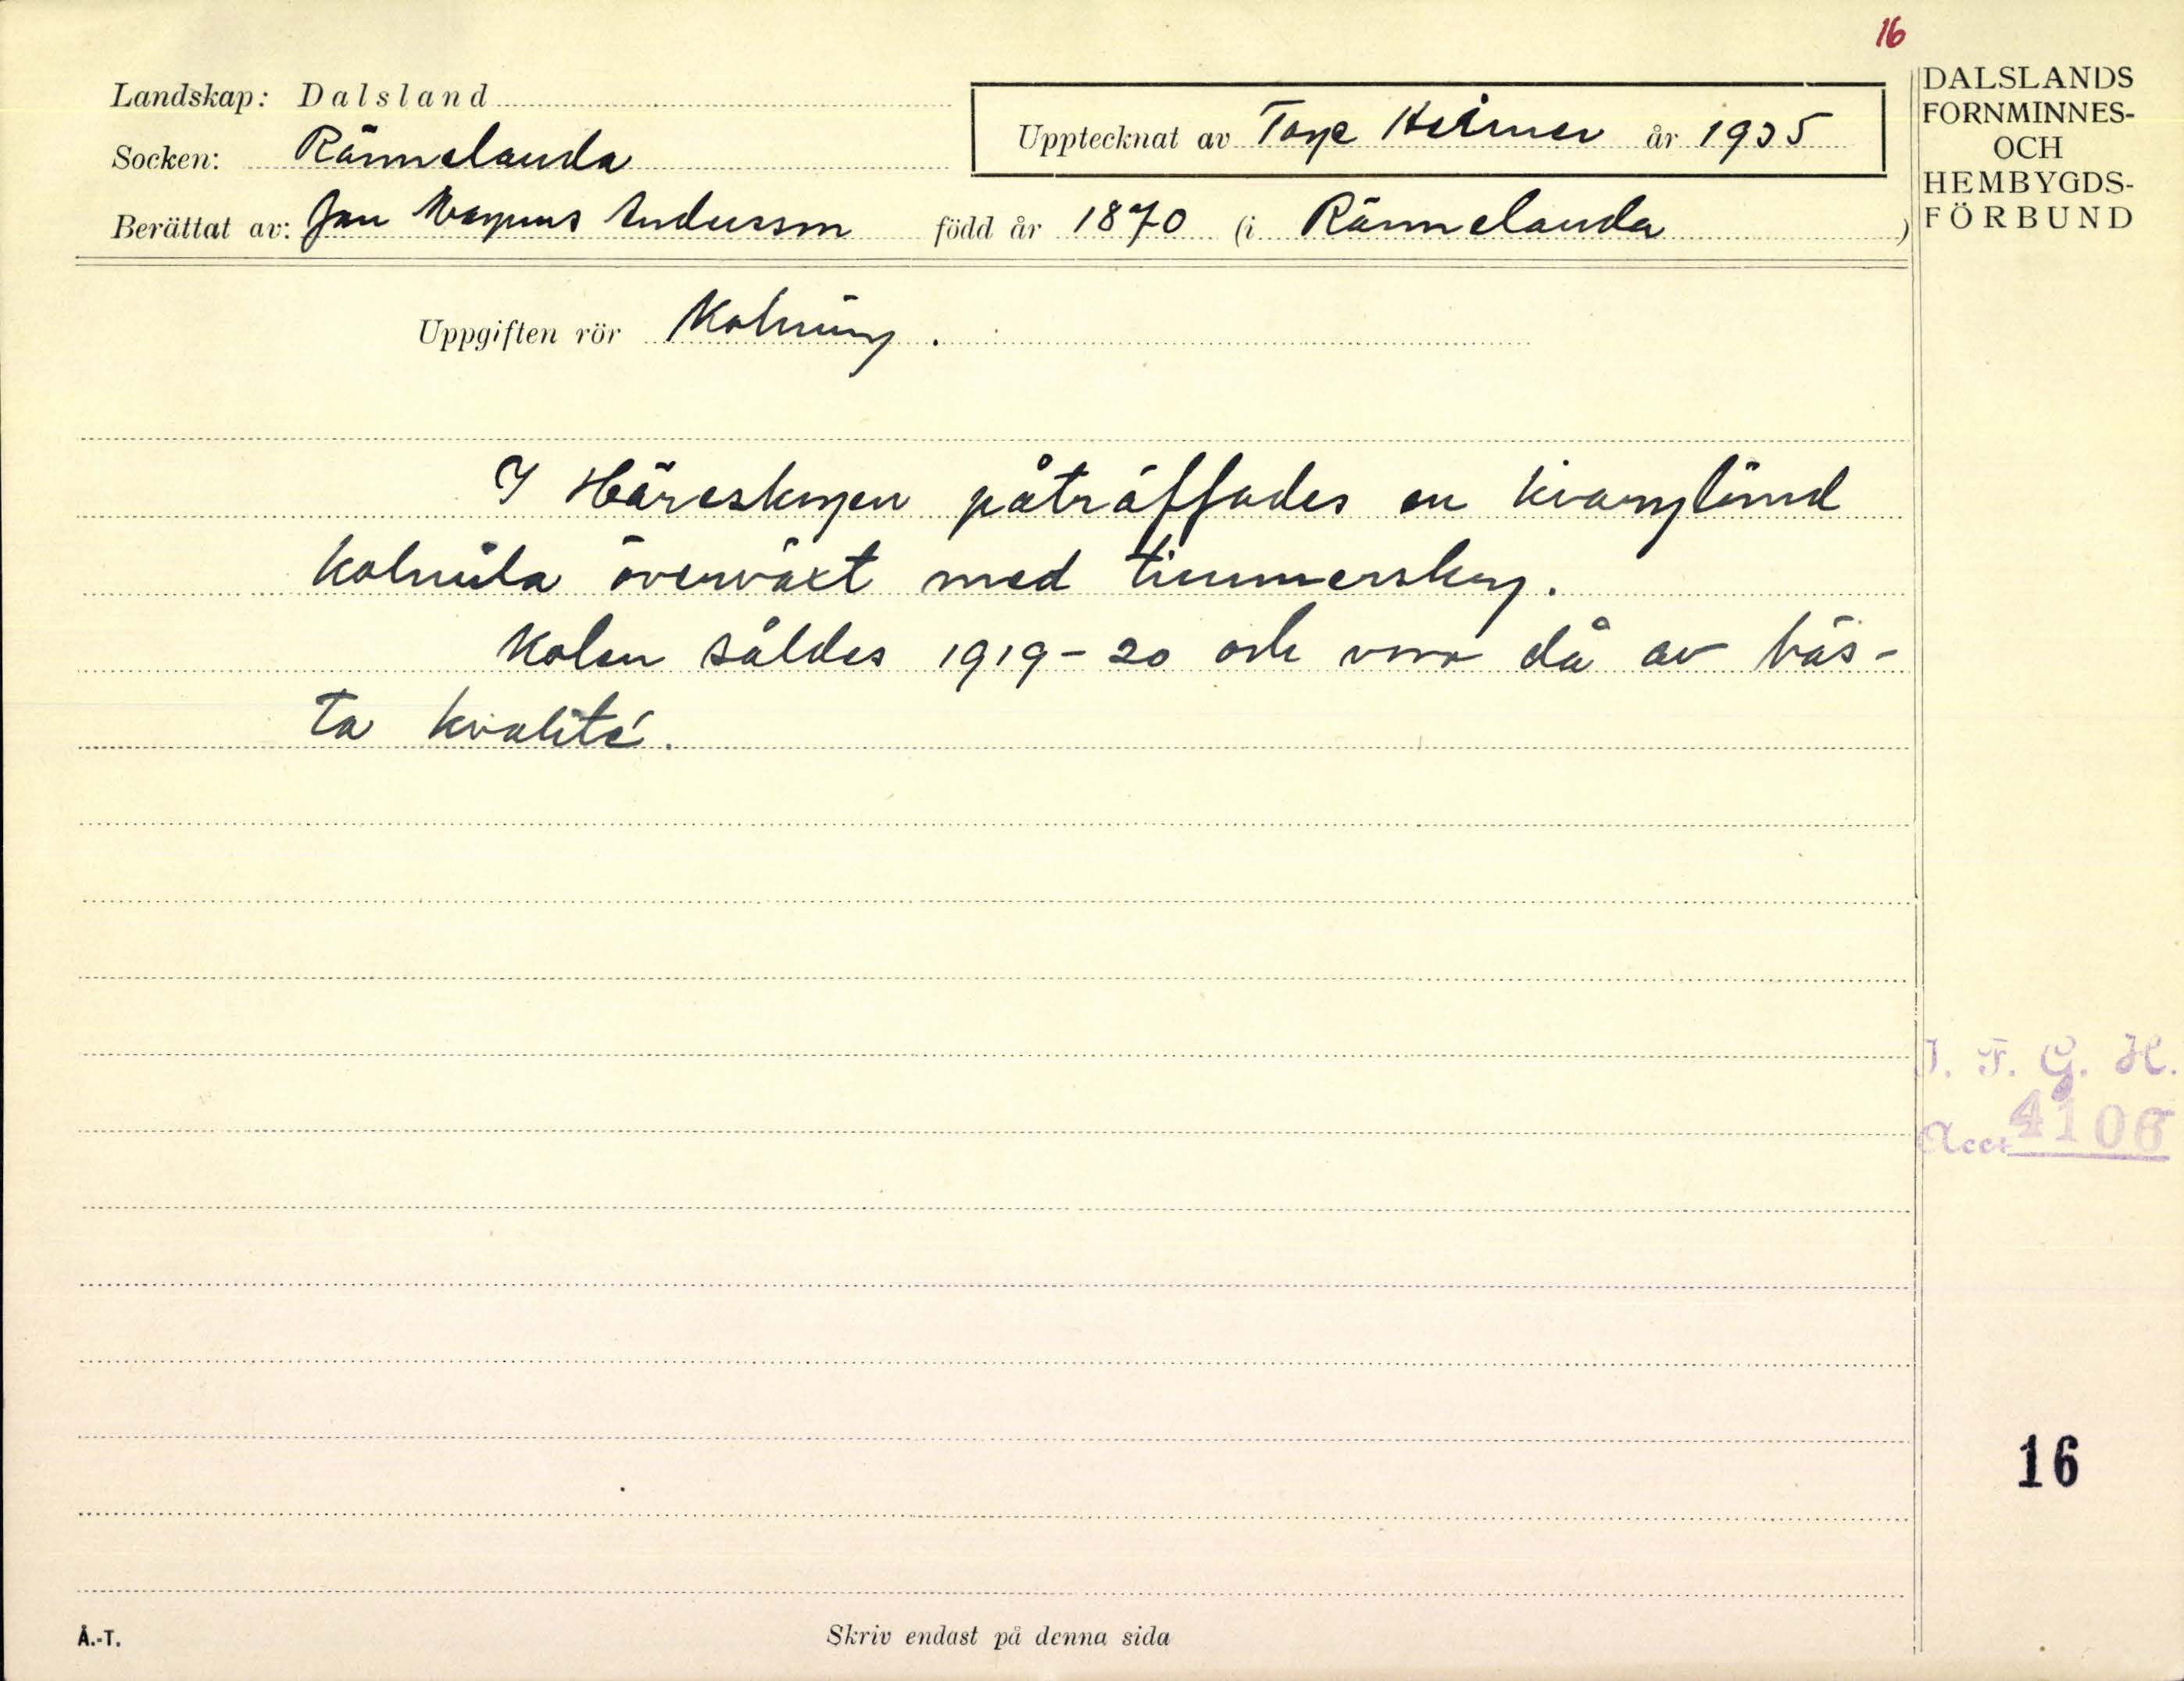 16
Landskap: Dalsland
Socken: Rännelanda
Upptecknat av Tage Heimer år 1935
Berättat av: Jan Magnus Andersson född år 1870 (i Rännelanda)
DALSLANDS
FORNMINNES-
OCH
HEMBYGDS-
FÖRBUND
Uppgiften rör Kolning.
I Häreskogen påträffades en kvarglömd
kolmila överväxt med timmerskog.
Kolen såldes 1919-20 och voro då av bäs-
ta kvalité.
I. F. G. H.
Acc. 4106
16
Å.-T.
Skriv endast på denna sida